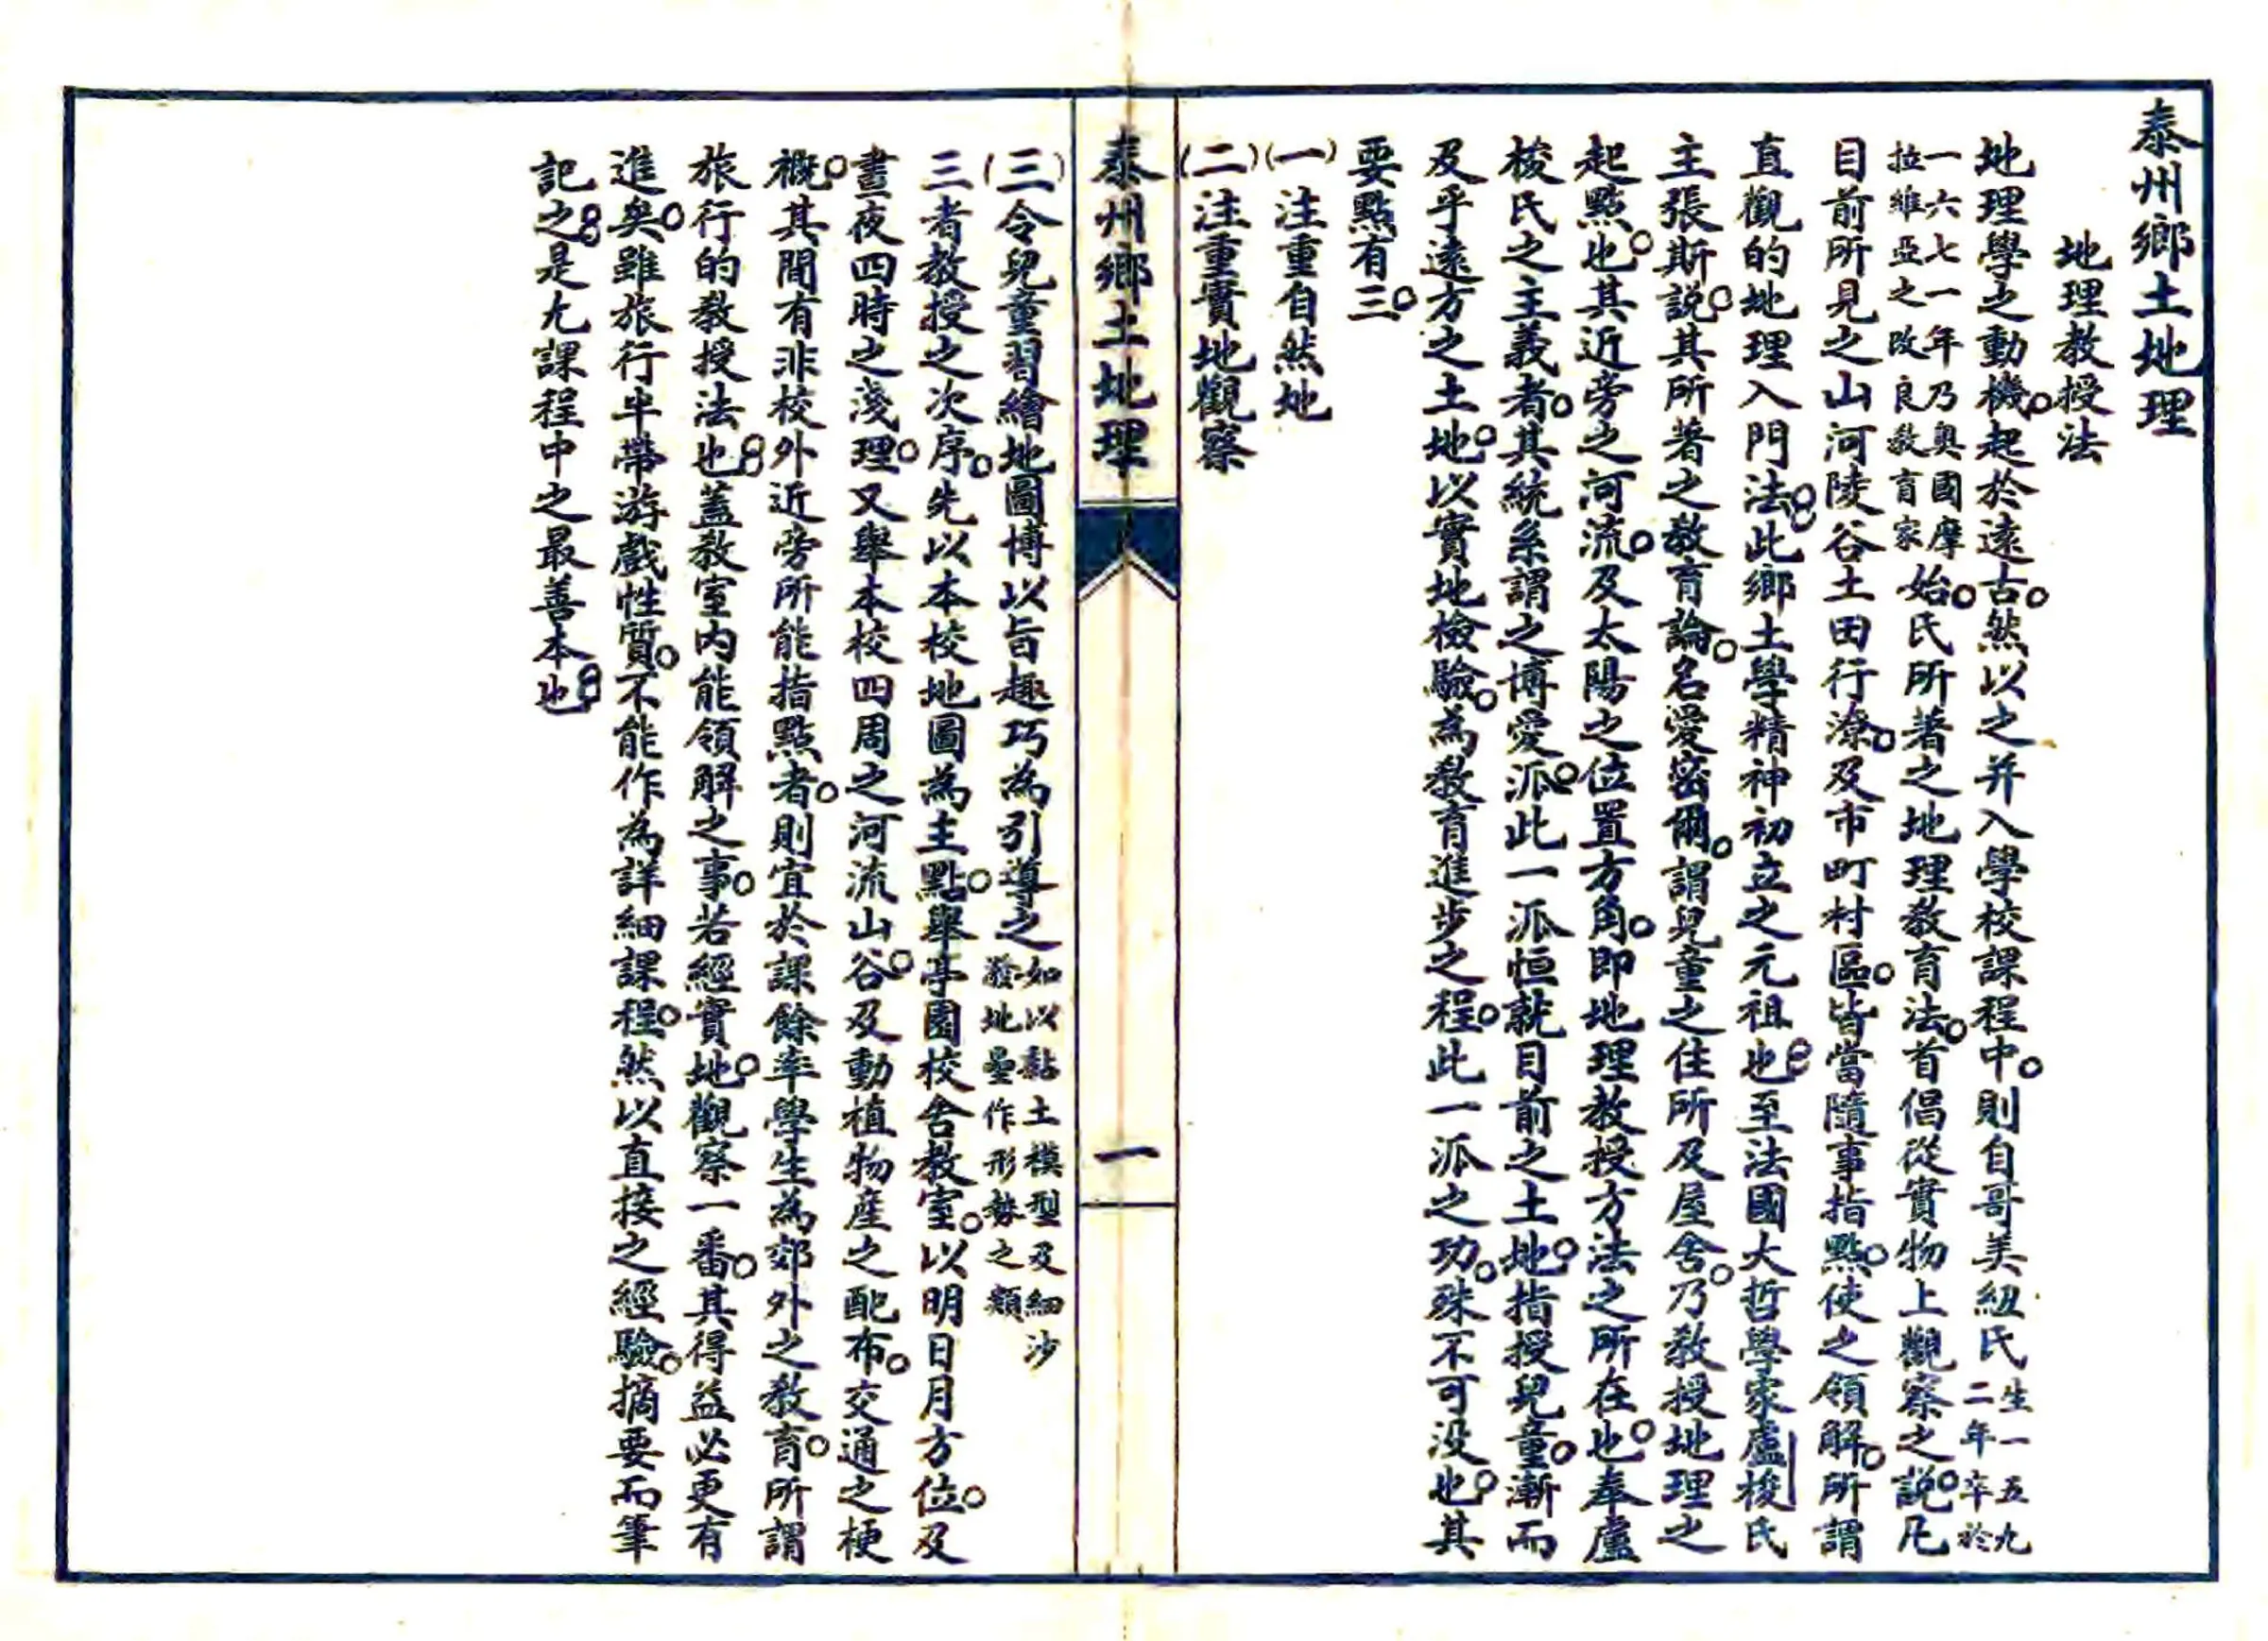 泰州鄉土地理
地理教授法
地理學之動機。起於遠古。然以之并入學校課程中。則自哥美紐氏生一五九二年卒於
一六七一年乃奧國摩拉維亞之改良教育家始。氏所著之地理教育法。首倡從實物上觀察之說。凡
目前所見之山河陵谷土田行潦。及市町村區。皆當隨事指點。使之領解。所謂
直觀的地理入門法。此鄉土學精神初立之元祖也。至法國大哲學家盧梭氏
主張斯說。其所著之教育論。名愛密爾。謂兒童之住所及屋舍。乃教授地理之
起點也。其近旁之河流。及太陽之位置方角。即地理教授方法之所在也。奉盧
梭氏之主義者。其統系謂之博愛派。此一派恒就目前之土地。指授兒童。漸而
及乎遠方之土地。以實地檢驗。為教育進步之程。此一派之功。殊不可沒也。其
要點有三。
(一)注重自然地
(二)注重實地觀察
泰州鄉土地理
一
(三)令兒童習繪地圖博以旨趣巧為引導之如以黏土模型及細沙潑地壘作形勢之類
三者教授之次序。先以本校地圖為主點。舉亭園校舍教室。以明日月方位。及
晝夜四時之淺理。又舉本校四周之河流山谷。及動植物產之配布。交通之梗
概。其間有非校外近旁所能指點者。則宜於課餘率學生為郊外之教育。所謂
旅行的教授法也。蓋教室內能領解之事。若經實地。觀察一番。其得益必更有
進矣。雖旅行半帶游戲性質。不能作為詳細課程。然以直接之經驗。摘要而筆
記之。是尤課程中之最善本也。